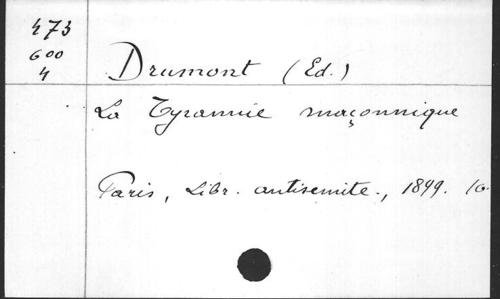 473
600
4
Drumont (Ed.)
La Tyrannie maçonnique
Paris, Libr. antisemite., 1899.